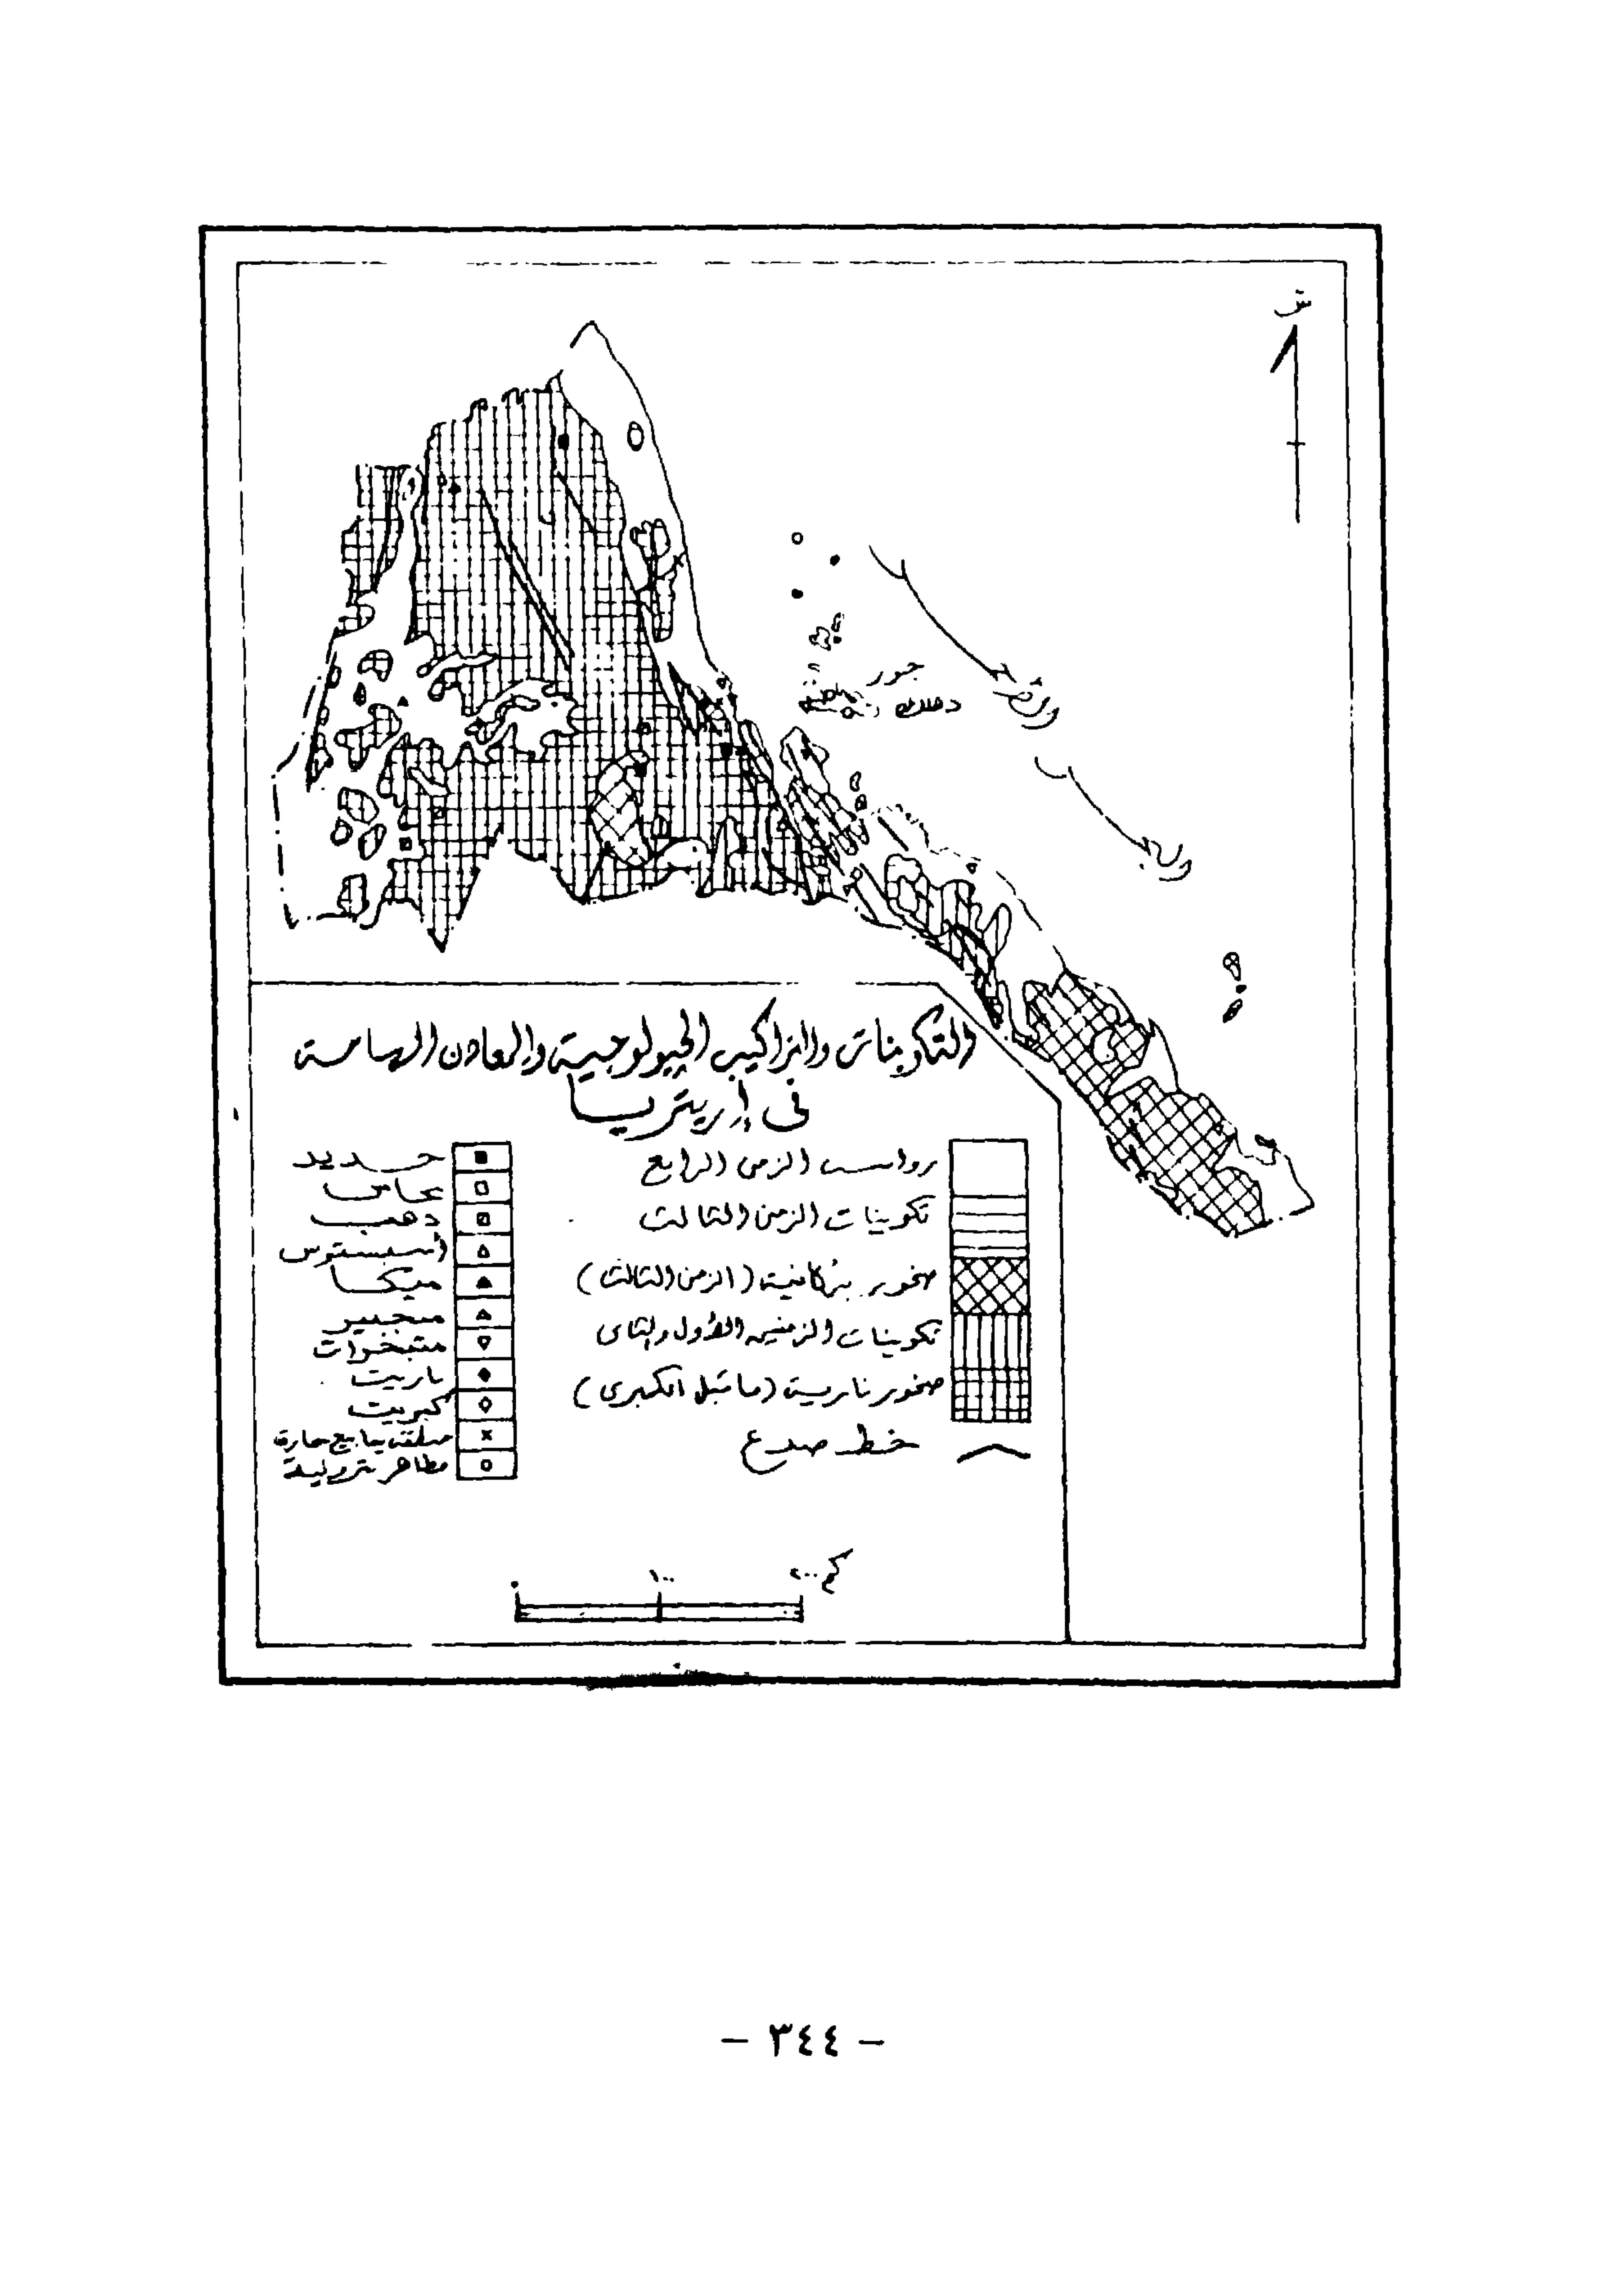 ش
جزر
دهلك
التكوينات والتراكيب الجيولوجية والمعادن الهامة
فى إريتريا
رواسب الزمن الرابع
تكوينات الزمن الثالث
صخور بركانية (الزمن الثالث)
تكوينات الزمنين الأول والثانى
صخور نارية (ما قبل الكمبرى)
خط صدع
حديد
نحاس
دهب
أسبستوس
ميكا
منجنيز
متبخرات
باريت
كبريت
منطقة ينابيع حارة
مظاهر بترولية
٠ ١٠٠ ٢٠٠ كم
– ٣٤٤ –